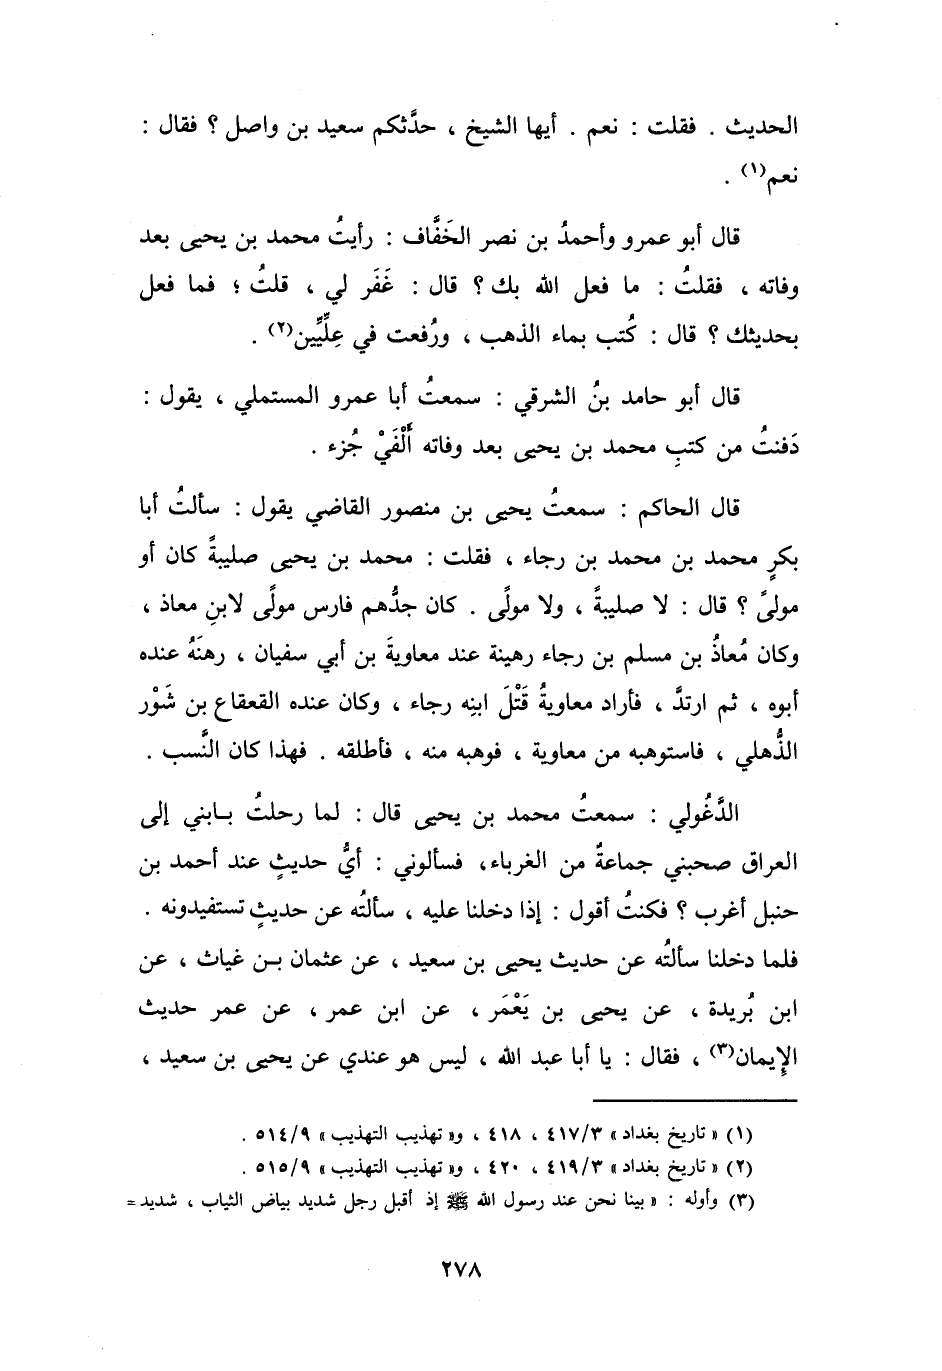 الحديث . فقلت : نعم . أيها الشيخ ، حدَّثكم سعيد بن واصل ؟ فقال :
نعم(١) .
قال أبو عمرو وأحمدُ بن نصر الخَفَّاف : رأيتُ محمد بن يحيى بعد
وفاته ، فقلتُ : ما فعل الله بك ؟ قال : غَفَر لي ، قلتُ ؛ فما فعل
بحديثك ؟ قال : كُتب بماء الذهب ، ورُفعت في عِلِّيِّين(٢) .
قال أبو حامد بنُ الشرقي : سمعتُ أبا عمرو المستملي ، يقول :
دَفنتُ من كتبِ محمد بن يحيى بعد وفاته أَلْفَيْ جُزء .
قال الحاكم : سمعتُ يحيى بن منصور القاضي يقول : سألتُ أبا
بكرٍ محمد بن محمد بن رجاء ، فقلت : محمد بن يحيى صليبةً كان أو
مولىً ؟ قال : لا صليبةً ، ولا مولًى . كان جدُّهم فارس مولًى لابنِ معاذ ،
وكان مُعاذُ بن مسلم بن رجاء رهينة عند معاويةَ بن أبي سفيان ، رهنَهُ عنده
أبوه ، ثم ارتدَّ ، فأراد معاويةُ قَتْلَ ابنِه رجاء ، وكان عنده القعقاع بن شَوْر
الذُّهلي ، فاستوهبه من معاوية ، فوهبه منه ، فأطلقه . فهذا كان النَّسب .
الدَّغُولي : سمعتُ محمد بن يحيى قال : لما رحلتُ بابني إلى
العراق صحبني جماعةٌ من الغرباء، فسألوني : أيُّ حديثٍ عند أحمد بن
حنبل أغرب ؟ فكنتُ أقول : إذا دخلنا عليه ، سألتُه عن حديثٍ تستفيدونه .
فلما دخلنا سألتُه عن حديث يحيى بن سعيد ، عن عثمان بن غياث ، عن
ابن بُريدة ، عن يحيى بن يَعْمَر ، عن ابن عمر ، عن عمر حديث
الإيمان(٣) ، فقال : يا أبا عبد الله ، ليس هو عندي عن يحيى بن سعيد ،
(١) « تاريخ بغداد » ٤١٧/٣ ، ٤١٨ ، و« تهذيب التهذيب » ٥١٤/٩ .
(٢) « تاريخ بغداد » ٤١٩/٣ ، ٤٢٠ ، و« تهذيب التهذيب » ٥١٥/٩ .
(٣) وأوله : « بينا نحن عند رسول الله ﷺ إذ أقبل رجل شديد بياض الثياب ، شديد=
٢٧٨